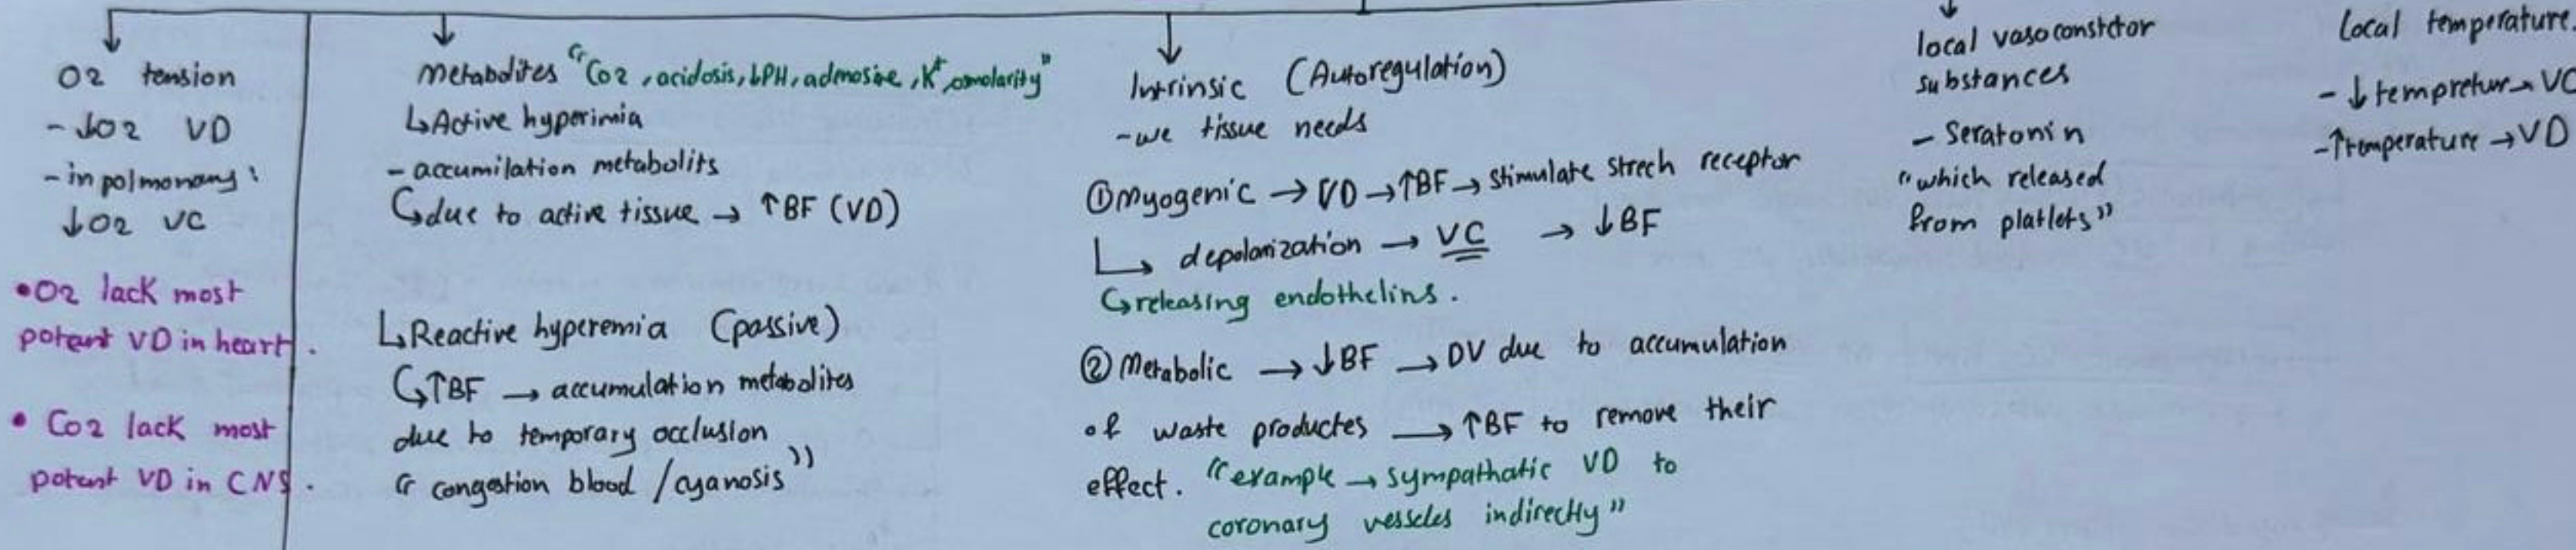 O2 tension
- ↓O2 VD
- in polmonary:
↓O2 VC
• O2 lack most
potent VD in heart.
• Co2 lack most
potent VD in CNS.
Metabolites "Co2, acidosis, ↓PH, adnosine, K+, osmolarity"
↳ Active hyperimia
- accumilation metabolits
↳ due to active tissue → ↑BF (VD)
↳ Reactive hyperemia (passive)
↳ ↑BF → accumulation metabolites
due to temporary occlusion
" congestion blood / cyanosis"
Intrinsic (Autoregulation)
- we tissue needs
① Myogenic → VD → ↑BF → stimulate strech receptor
↳ depolarization → VC → ↓BF
↳ releasing endothelins.
② Metabolic → ↓BF → DV due to accumulation
of waste productes → ↑BF to remove their
effect. "example → sympathatic VD to
coronary vesscles indirectly"
local vasoconstctor
substances
- Seratonin
"which released
from platlets"
Local temperature.
- ↓ tempretur → VC
- ↑ temperature → VD